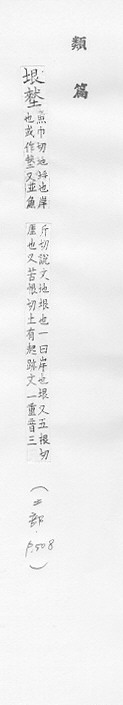 類篇
垠㙬
魚巾切地垠也岸
也或作㙬又並魚
斤切說文地垠也一曰岸也垠又五根切
厓也又苦恨切土有起跡文一重音三
(土部·p.508)